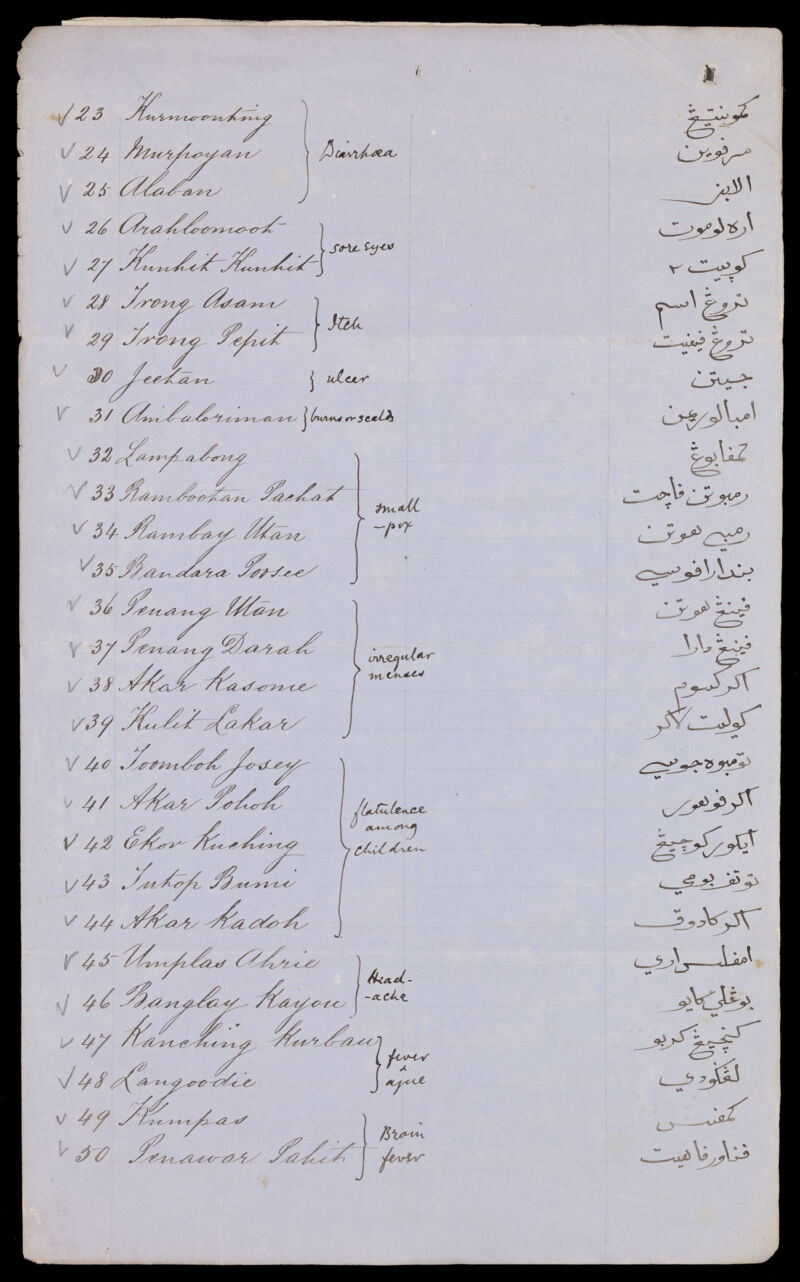 23 Kurmoonting كموينتيڠ
24 Murpoyan } Diarrhœa مرڤوين
25 Alaban الابن
26 Arahloomoot اره لوموت
27 Kunhit Kunhit } sore eyes كوڽيت ٢
28 Trong Asam تروڠ اسم
29 Trong Pepit } Itch تروڠ ڤيڤيت
30 Jeetan } ulcer جيتن
31 Ambaloriman } burns or scalds امبالوريمن
32 Lampabong لمڤابوڠ
33 Rambootan Pachat رمبوتن ڤاچت
34 Rambay Utan } small-pox رمبي هوتن
35 Bandara Poosee بندارا ڤوسي
36 Penang Utan ڤينڠ هوتن
37 Penang Darah } irregular menses ڤينڠ دارا
38 Akar Kasome اكر كسوم
39 Kulit Lakar كوليت لاكر
40 Toomboh Josey تومبوه جوسي
41 Akar Pohoh } flatulence among children اكر ڤوهور
42 Ekor Kuching ايكور كوچيڠ
43 Tutop Bumi توتڤ بومي
44 Akar Kadoh اكر كادوق
45 Umplas Ahrie امڤلس اري
46 Banglay Kayou } Head-ache بوڠلي كايو
47 Kanching Kurbau كنچيڠ كربو
48 Langoodie } fever & ague لڠكودي
49 Kumpas كمڤس
50 Penawar Pahit } Brain fever ڤناور ڤاهيت